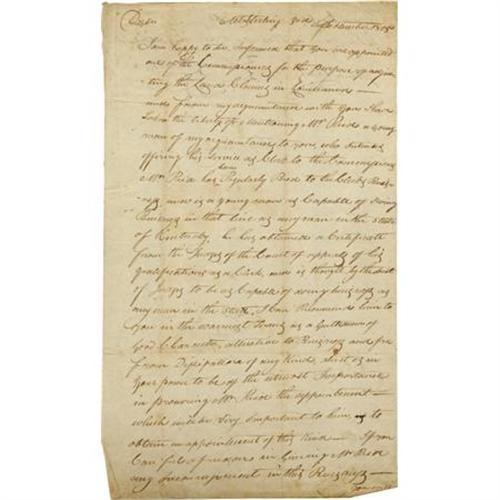 Dear Sir Mt Sterling 3rd September 1805
I am happy to be informed that you are appointed
one of the Commissioners for the purpose of adjus
ting the Land Claims in Louisiana —
and from my acquaintance with you I have
taken the liberty of Mentioning Mr Read a young
man of my acquaintance to you, who intends
offering his service as Clerk to the Commissioners
Mr Read has been Regularly Bred to the Clerks
and is a young man as Capable of doing
Business in that line as any man in the State
of Kentucky. he has obtained a Certificate
from the Judges of the Court of appeals of his
qualifications as a Clerk, and is thought by the
of Judges to be as Capable of doing business as
any man in the State, I can Recommend him to
you in the warmest terms as a Gentleman of
good Character, attentive to Business and free
from Dissipation of any Kind, it is in
your power to be of the utmost Importance
in procuring Mr Read the appointment —
which will be very important to him to
obtain an appointment of this Kind — If you
Can feel a freedom in Giving Mr Read
any encouragement in this Business —